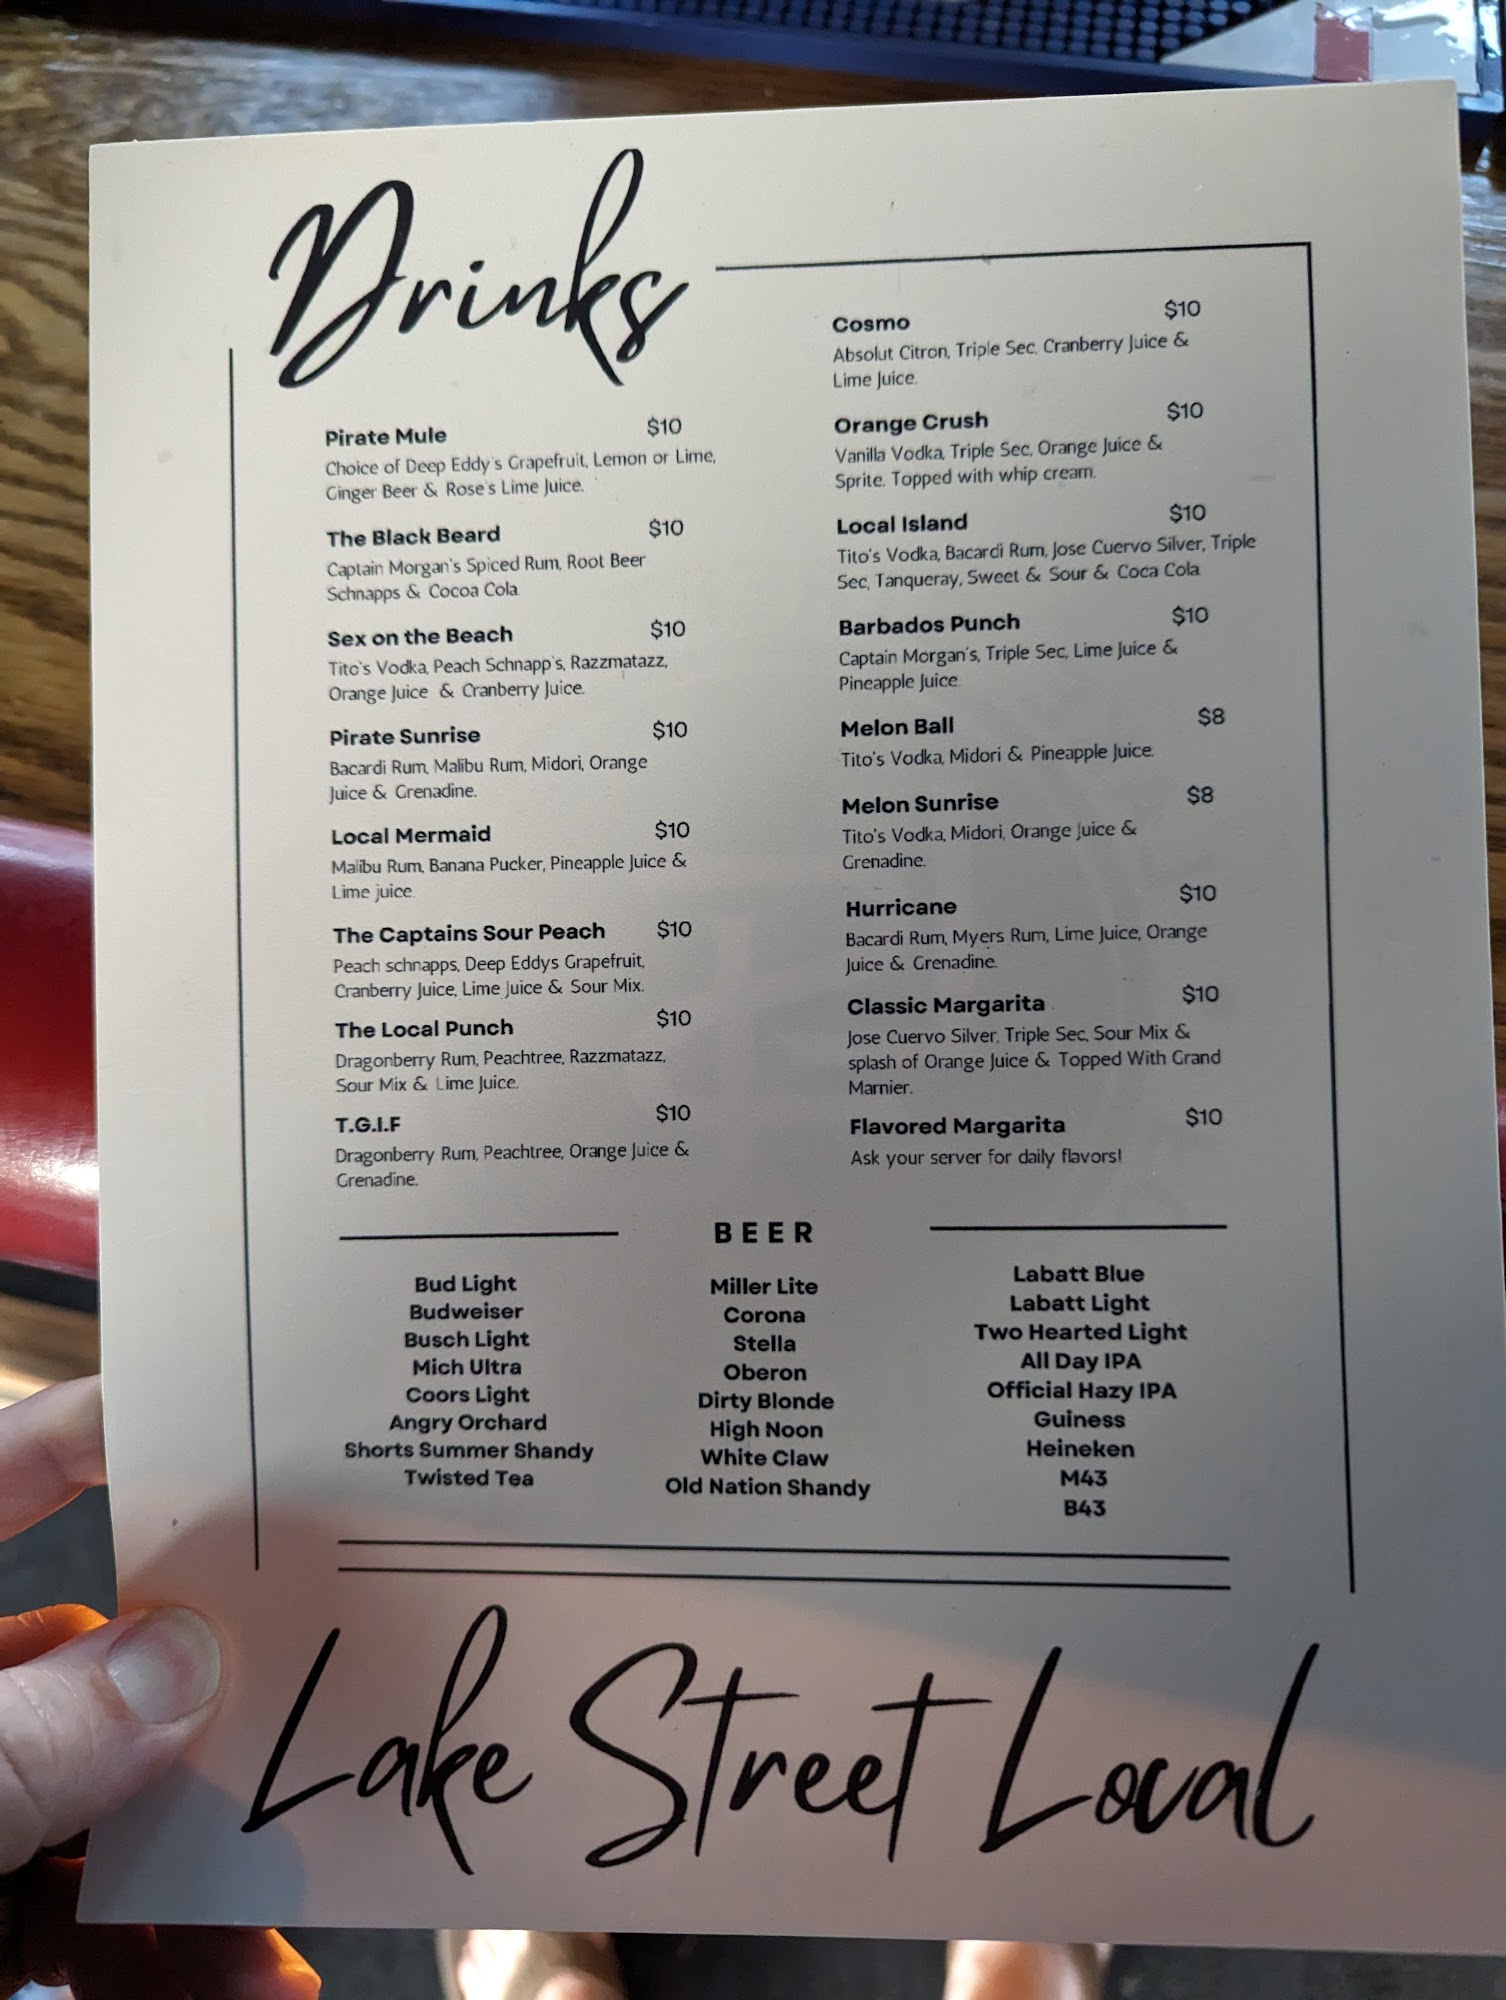 Drinks
Pirate Mule $10
Choice of Deep Eddy's Grapefruit, Lemon or Lime,
Ginger Beer & Rose's Lime Juice.
The Black Beard $10
Captain Morgan's Spiced Rum, Root Beer
Schnapps & Cocoa Cola.
Sex on the Beach $10
Tito's Vodka, Peach Schnapp's, Razzmatazz,
Orange Juice & Cranberry Juice.
Pirate Sunrise $10
Bacardi Rum, Malibu Rum, Midori, Orange
Juice & Grenadine.
Local Mermaid $10
Malibu Rum, Banana Pucker, Pineapple Juice &
Lime juice.
The Captains Sour Peach $10
Peach schnapps, Deep Eddys Grapefruit,
Cranberry Juice, Lime Juice & Sour Mix.
The Local Punch $10
Dragonberry Rum, Peachtree, Razzmatazz,
Sour Mix & Lime Juice.
T.G.I.F $10
Dragonberry Rum, Peachtree, Orange Juice &
Grenadine.
Cosmo $10
Absolut Citron, Triple Sec, Cranberry Juice &
Lime Juice.
Orange Crush $10
Vanilla Vodka, Triple Sec, Orange Juice &
Sprite. Topped with whip cream.
Local Island $10
Tito's Vodka, Bacardi Rum, Jose Cuervo Silver, Triple
Sec, Tanqueray, Sweet & Sour & Coca Cola
Barbados Punch $10
Captain Morgan's, Triple Sec, Lime Juice &
Pineapple Juice.
Melon Ball $8
Tito's Vodka, Midori & Pineapple Juice.
Melon Sunrise $8
Tito's Vodka, Midori, Orange Juice &
Grenadine.
Hurricane $10
Bacardi Rum, Myers Rum, Lime Juice, Orange
Juice & Grenadine.
Classic Margarita $10
Jose Cuervo Silver, Triple Sec, Sour Mix &
splash of Orange Juice & Topped With Grand
Marnier.
Flavored Margarita $10
Ask your server for daily flavors!
BEER
Bud Light
Budweiser
Busch Light
Mich Ultra
Coors Light
Angry Orchard
Shorts Summer Shandy
Twisted Tea
Miller Lite
Corona
Stella
Oberon
Dirty Blonde
High Noon
White Claw
Old Nation Shandy
Labatt Blue
Labatt Light
Two Hearted Light
All Day IPA
Official Hazy IPA
Guiness
Heineken
M43
B43
Lake Street Local